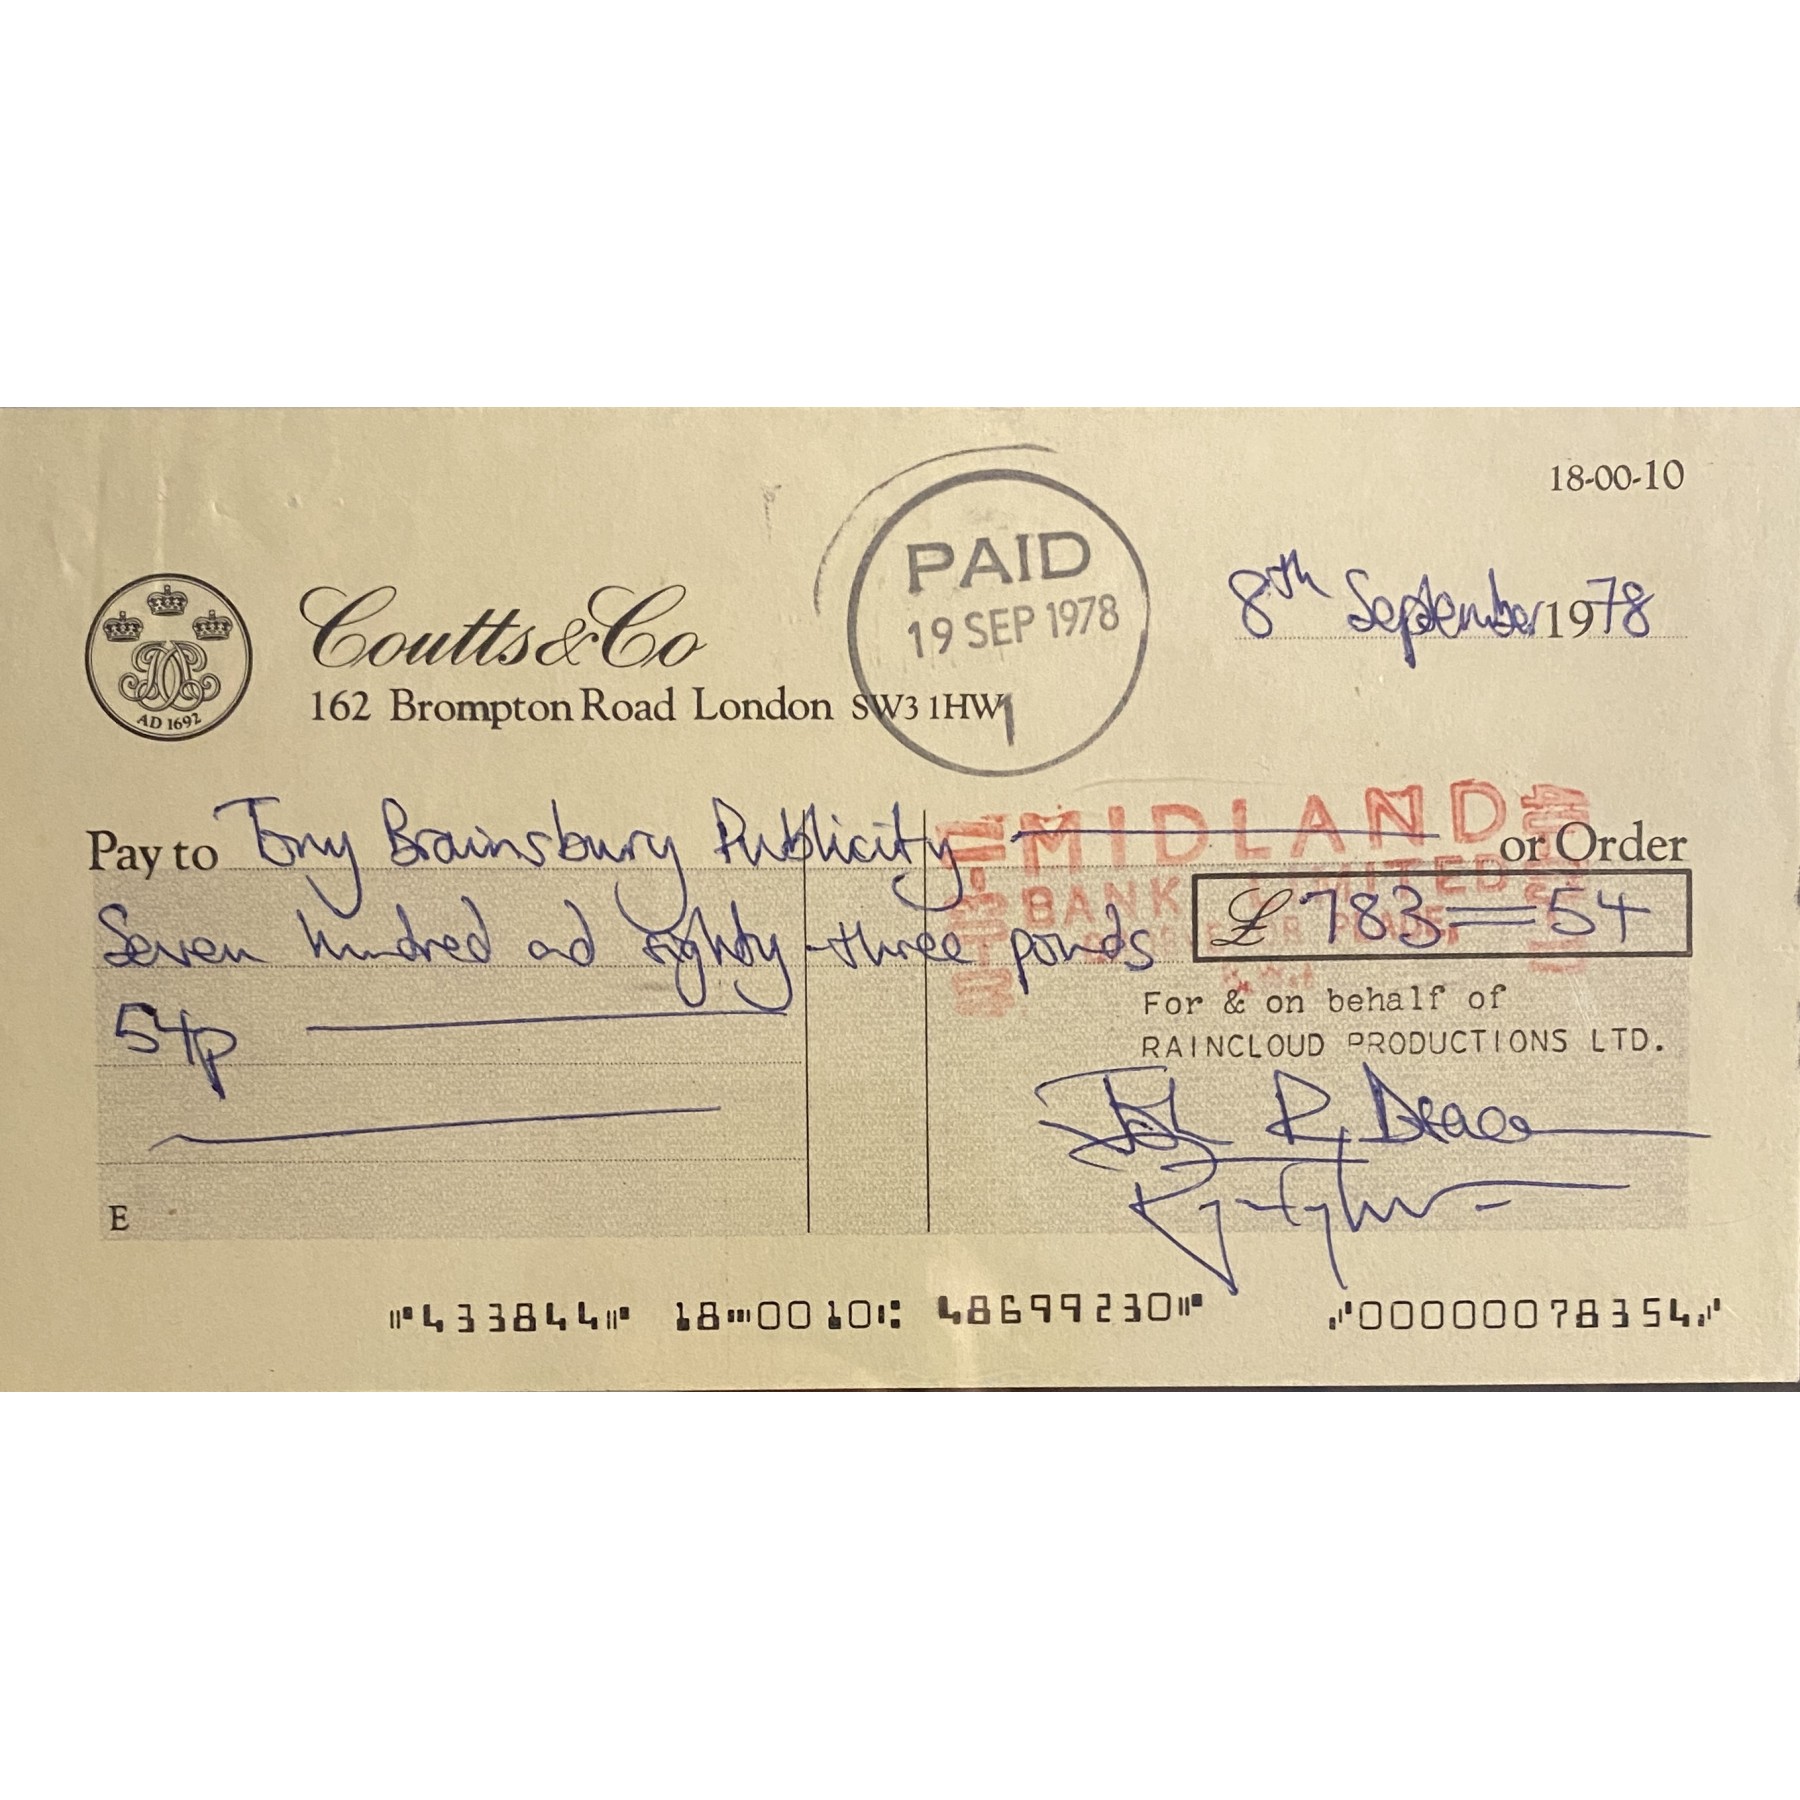 18-00-10
PAID
19 SEP 1978
1
8th September 1978
Coutts & Co
AD 1692
162 Brompton Road London SW3 1HW
MIDLAND
BANK LIMITED
Pay to Tony Brainsbury Publicity or Order
Seven hundred and eighty-three pounds £ 783=54
54p
For & on behalf of
RAINCLOUD PRODUCTIONS LTD.
John R. Deacon
E
433844 18 0010 48699230 0000078354